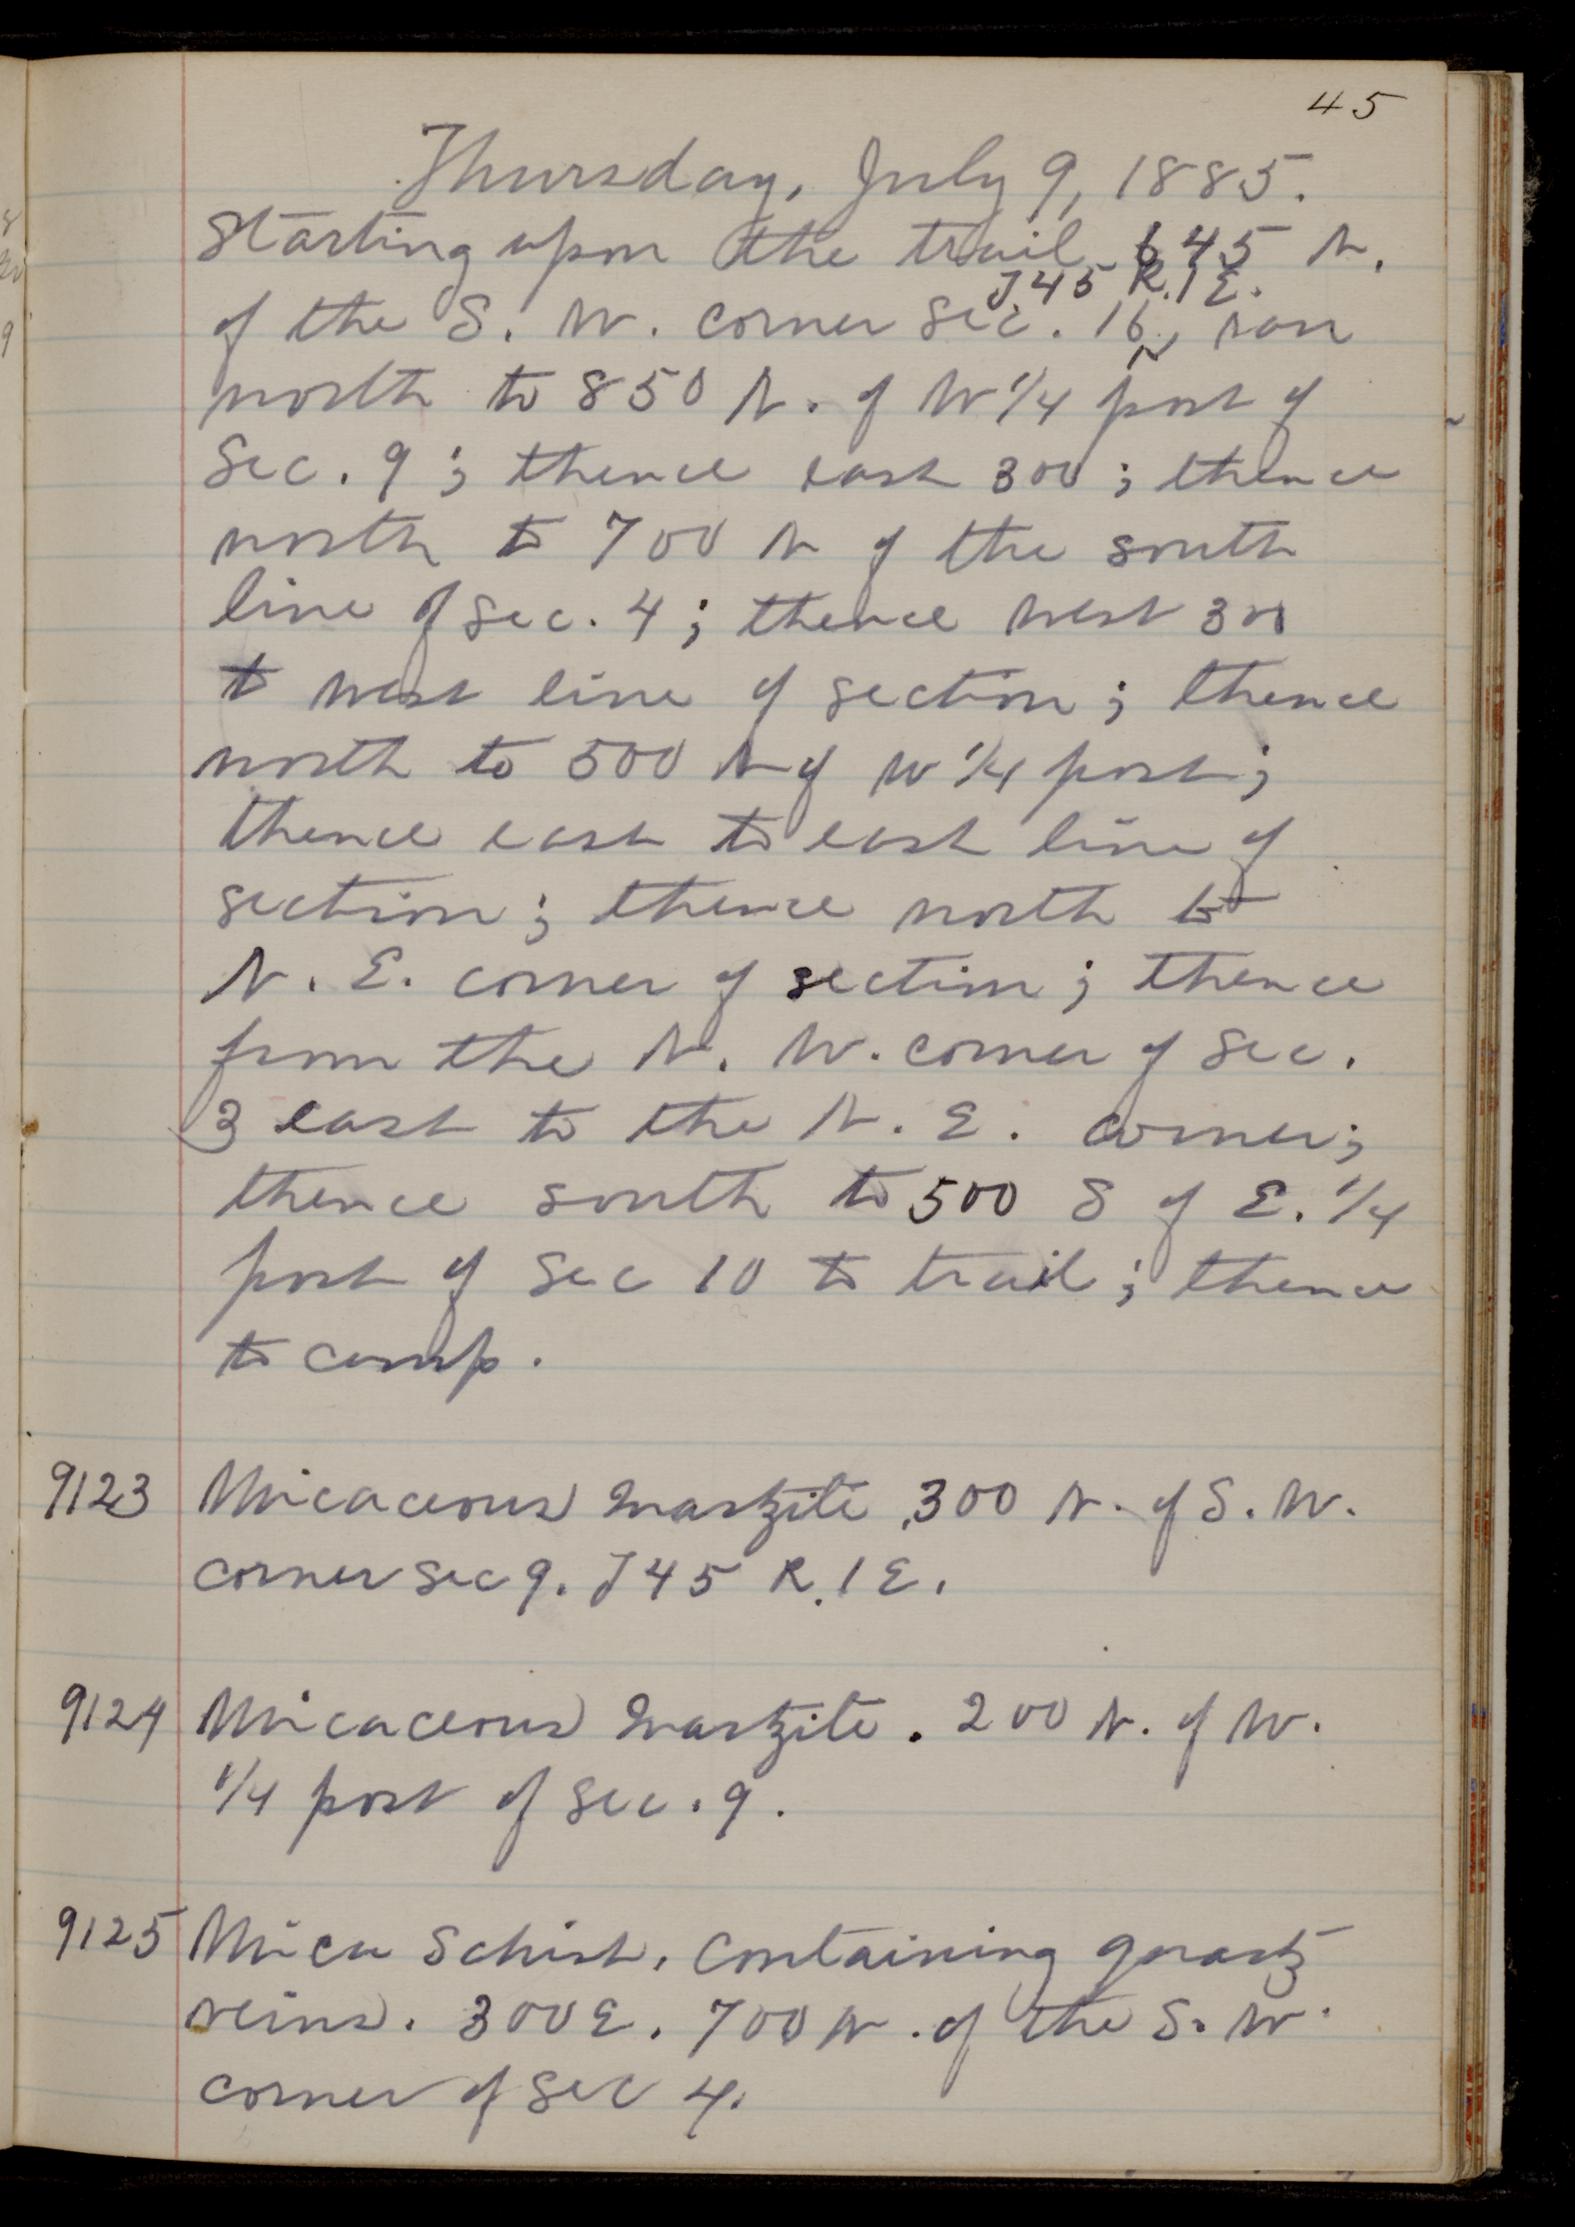 45
Thursday, July 9, 1885.
Starting upon the trail 645 N.
T.45 R.1 E.
of the S. W. corner Sec. 16, ran
north to 850 N. of W 1/4 post of
Sec. 9; thence east 300; thence
north to 700 N of the south
line of Sec. 4; thence west 300
to west line of section; thence
north to 500 N of W 1/4 post;
thence east to east line of
section; thence north to
N. E. corner of section; thence
from the N. W. corner of Sec.
3 east to the N. E. corner;
thence south to 500 S of E. 1/4
post of Sec 10 to trail; thence
to camp.
9123 Micaceous Quartzite, 300 N. of S. W.
corner Sec 9. T 45 R. 1 E.
9124 Micaceous Quartzite. 200 N. of W.
1/4 post of Sec. 9.
9125 Mica Schist, containing quartz
veins. 300 E. 700 N. of the S. W.
corner of Sec 4.